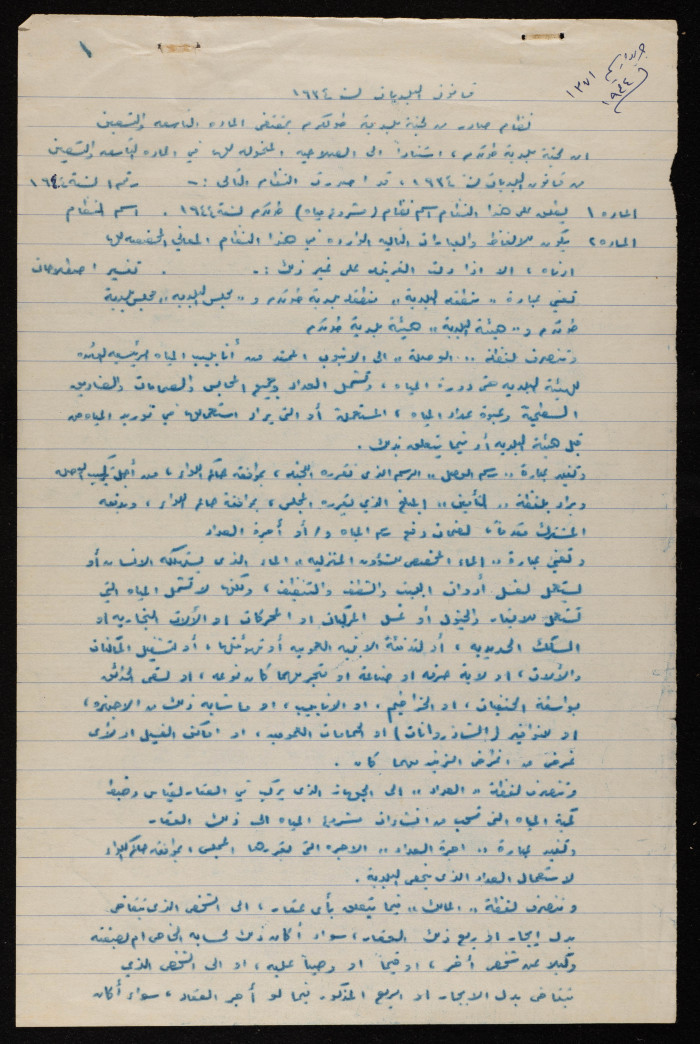 ١
جريدة رقم ١٣٧١
١٩٤٤
قانون البلديات لسنة ١٩٣٤
نظام صادر من لجنة بلدية طولكرم بمقتضى الماده التاسعه والتسعين
ان لجنة بلدية طولكرم، استناداً الى الصلاحيه المخوله لها في الماده التاسعه والتسعين
من قانون البلديات لسنة ١٩٣٤، قد اصدرت النظام التالي :- رقم ١ لسنة ١٩٤٤
الماده ١ يطلق على هذا النظام اسم نظام (مشروع مياه) طولكرم لسنة ١٩٤٤ . اسم النظام
الماده ٢ يكون للالفاظ والعبارات التاليه الوارده في هذا النظام المعاني المخصصه لها
ادناه، الا اذا دلت القرينه على غير ذلك :- . تفسير اصطلاحات
تعني عبارة "منطقة البلدية" منطقة بلدية طولكرم و"مجلس البلديه" مجلس بلدية
طولكرم و"هيئة البلدية" هيئة بلدية طولكرم
وتنصرف لفظة "الوصلة" الى الانبوب الممتد من أنابيب المياه الرئيسيه العائده
للهيئة البلديه حتى دورة المياه، وتشمل العداد وجميع المحابس والصمامات والصناديق
السطحية وعبوة عداد المياه، المستعملة أو التي يراد استعمالها في توريد المياه من
قبل هيئة البلديه أو فيما يتعلق بذلك.
وتفيد عبارة "رسم الوصل" الرسم الذي تقرره اللجنه، بموافقة حاكم اللواء، من أجل تركيب الوصله
ويراد بلفظة "التأمين" المبلغ الذي يقرره المجلس، بموافقة حاكم اللواء، ويدفعه
المشترك مقدماً، لضمان دفع رسم المياه و/أو أجرة العداد
وتعني عبارة "الماء المخصص للشؤون المنزليه" الماء الذي يستهلكه الانسان أو
يستعمل لغسل أدوات البيت والشطف والتنظيف، ولكنها لا تشمل المياه التي
تستعمل للابقار والخيول أو غسل المركبات او المحركات او الآلات التجاريه او
السكك الحديديه، أو لتدفئة الابنيه العموميه أو تهوئتها، أو لتشغيل الماكنات
والآلات، او لاية حرفه او صناعة او متجر مهما كان نوعه، او لسقي الحدائق
بواسطة الحنفيات، او الخراطيم، او الانابيب، او ما شابه ذلك من الاجهزه،
او للنوافير (الشاذروانات) او الحمامات العموميه، او اماكن الغسيل او لأي
غرض من اغراض الترفيه مهما كان .
وتنصرف لفظة "العداد" الى الجهاز الذي يركب في العقار لقياس وضبط
كمية المياه التي تسحب من انشاءات مشروع المياه الى ذلك العقار
وتفيد عبارة "اجرة العداد" الاجره التي يقررها المجلس بموافقة حاكم اللواء
لاستعمال العداد الذي يخص البلدية.
وتنصرف لفظة "المالك" فيما يتعلق بأي عقار، الى الشخص الذي يتقاضى
بدل ايجار او ريع ذلك العقار، سواء أكان ذلك لحسابه الخاص ام بصفته
وكيلا عن شخص آخر، او قيماً او وصياً عليه، او الى الشخص الذي
يتقاضى بدل الايجار او الريع المذكور فيما لو أجر العقار، سواء أكان